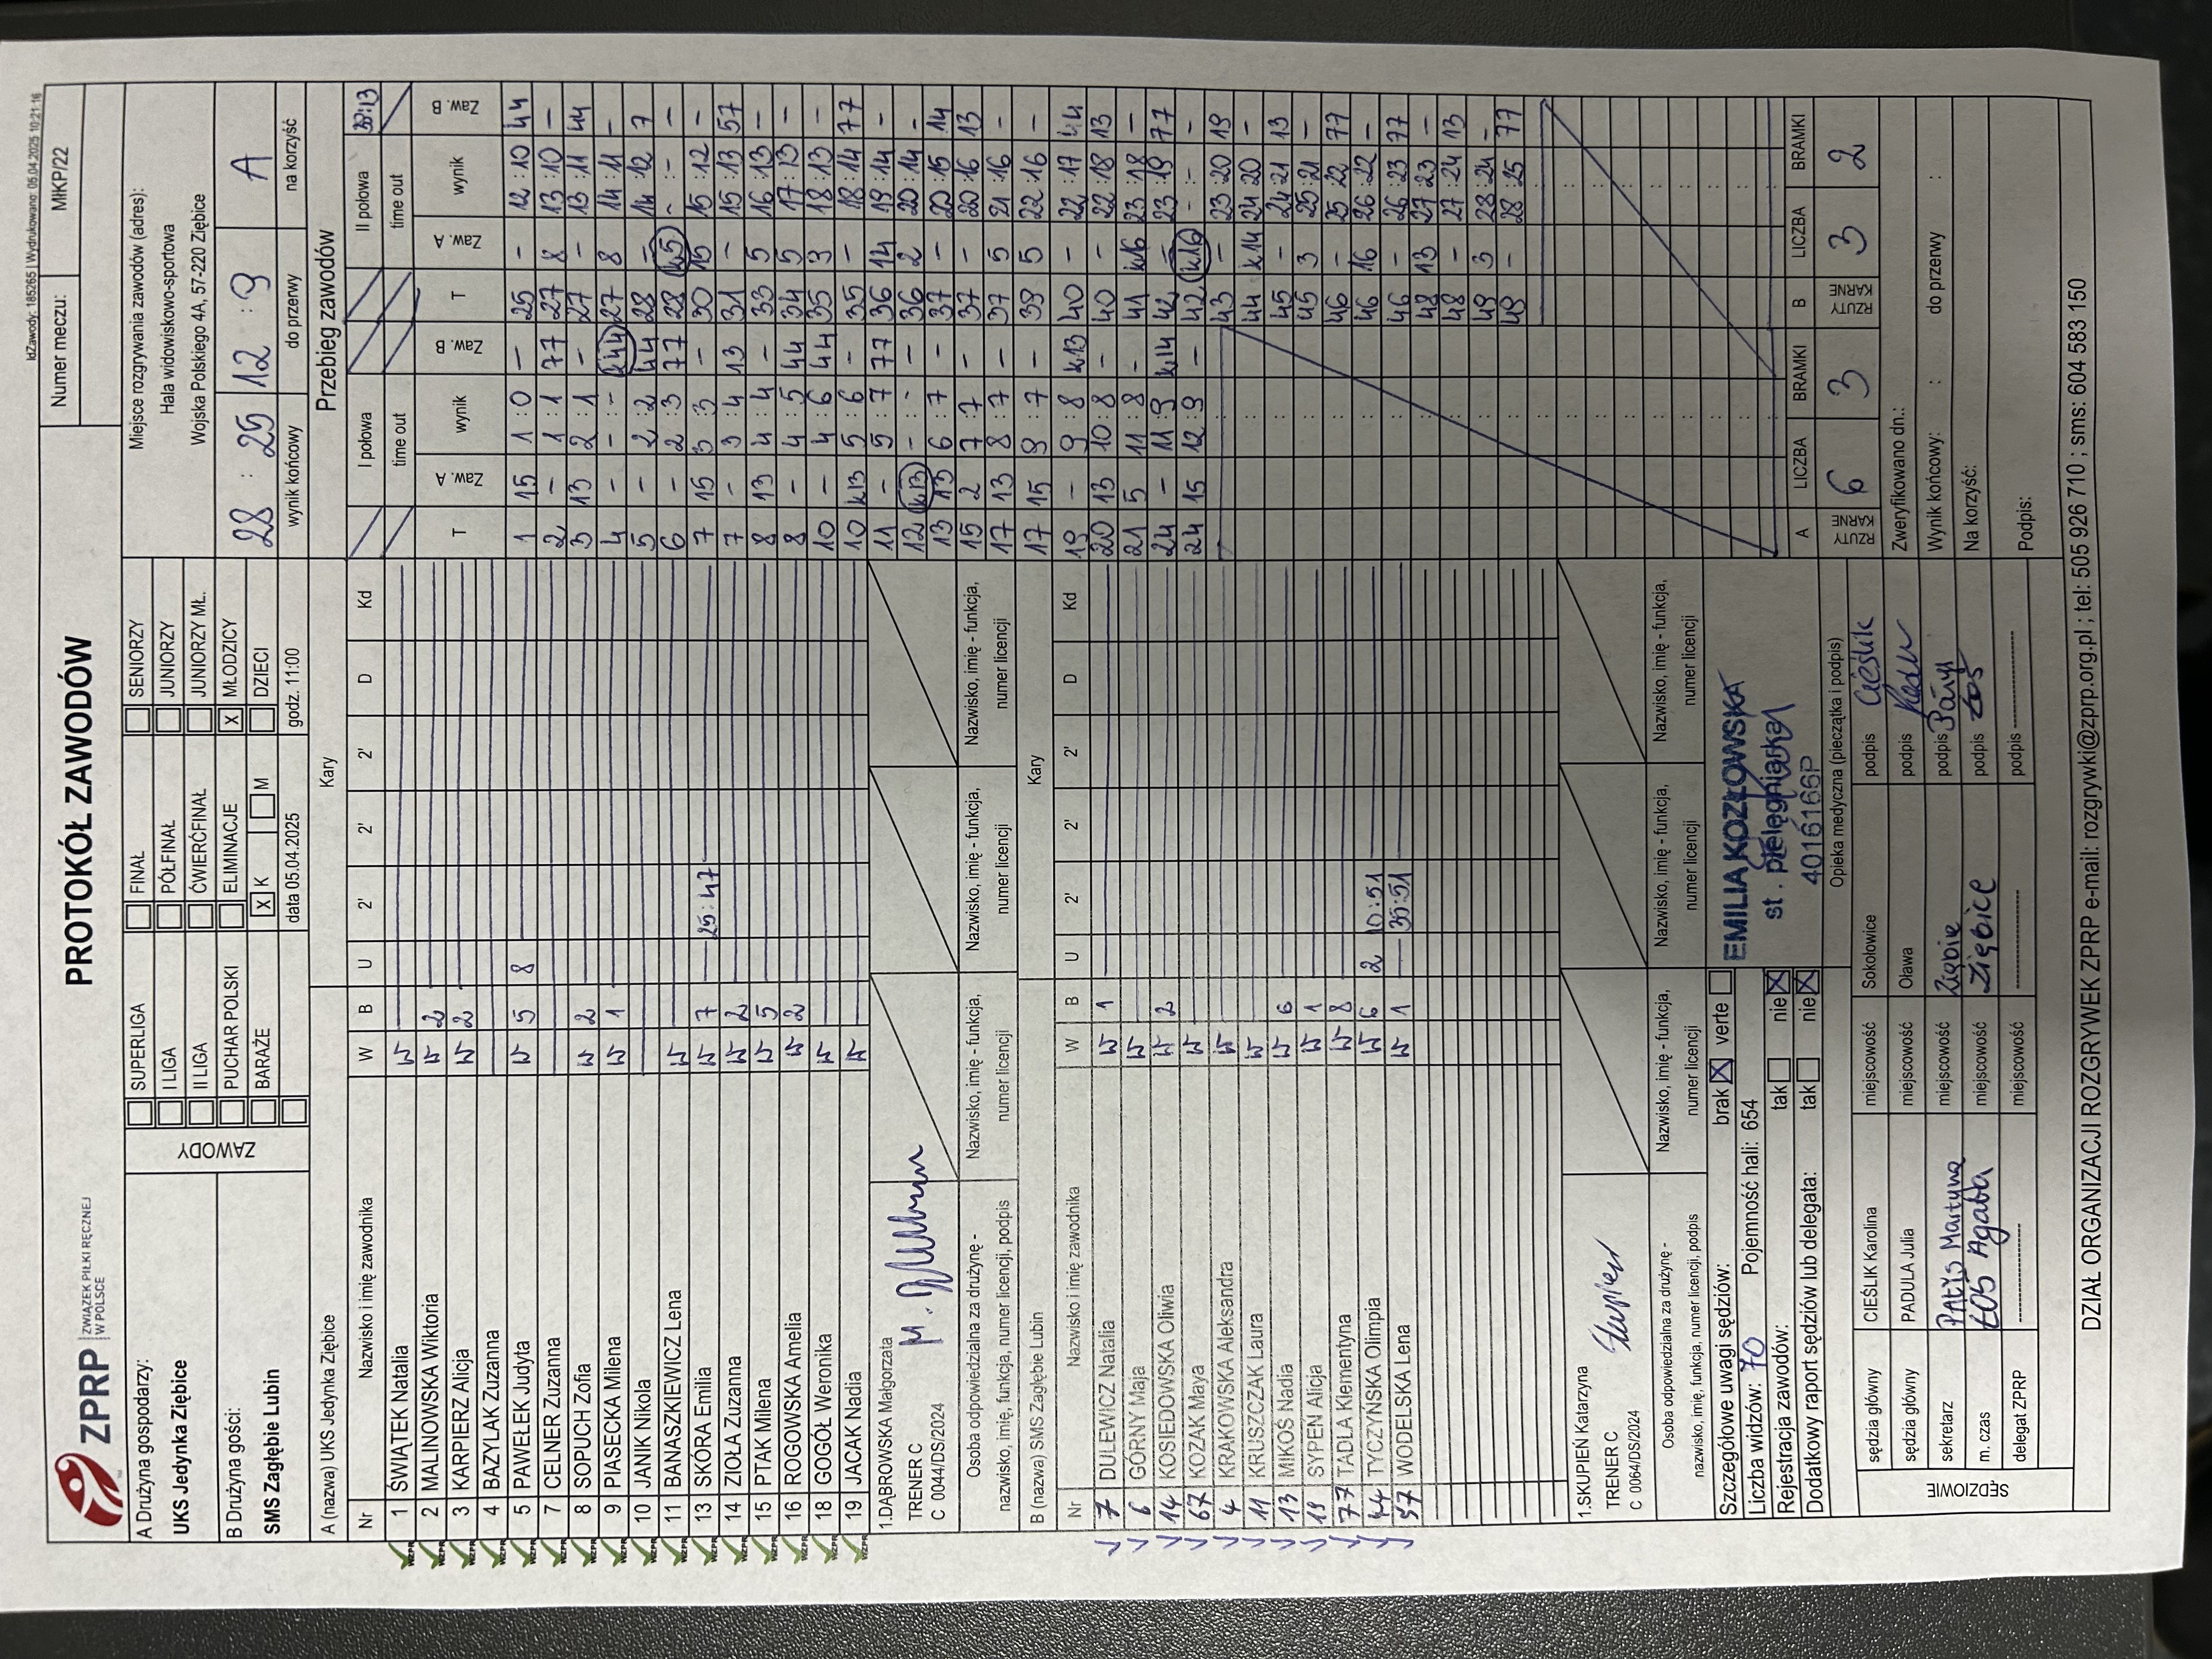 IdZawody: 185265 | Wydrukowano: 05.04.2025 10:21:16
ZPRP ZWIĄZEK PIŁKI RĘCZNEJ W POLSCE
PROTOKÓŁ ZAWODÓW
Numer meczu: MłKP/22
A Drużyna gospodarzy:
UKS Jedynka Ziębice
B Drużyna gości:
SMS Zagłębie Lubin
ZAWODY
SUPERLIGA FINAŁ SENIORZY
I LIGA PÓŁFINAŁ JUNIORZY
II LIGA ĆWIERĆFINAŁ JUNIORZY MŁ.
PUCHAR POLSKI ELIMINACJE X MŁODZICY
BARAŻE X K M DZIECI
data 05.04.2025 godz. 11:00
Miejsce rozgrywania zawodów (adres):
Hala widowiskowo-sportowa
Wojska Polskiego 4A, 57-220 Ziębice
28 : 25 12 : 9 A
wynik końcowy do przerwy na korzyść
A (nazwa) UKS Jedynka Ziębice Kary
Nr Nazwisko i imię zawodnika W B U 2' 2' 2' D Kd
1 ŚWIĄTEK Natalia W
2 MALINOWSKA Wiktoria W 2
3 KARPIERZ Alicja W 2
4 BAZYLAK Zuzanna
5 PAWEŁEK Judyta W 5 8
7 CELNER Zuzanna
8 SOPUCH Zofia W 2
9 PIASECKA Milena W 1
10 JANIK Nikola
11 BANASZKIEWICZ Lena W
13 SKÓRA Emilia W 7 25:47
14 ZIOŁA Zuzanna W 2
15 PTAK Milena W 5
16 ROGOWSKA Amelia W 2
18 GOGÓŁ Weronika W
19 JACAK Nadia W
1.DĄBROWSKA Małgorzata
TRENER C
C 0044/DS/2024
Osoba odpowiedzialna za drużynę -
nazwisko, imię, funkcja, numer licencji, podpis
Nazwisko, imię - funkcja,
numer licencji
Nazwisko, imię - funkcja,
numer licencji
Nazwisko, imię - funkcja,
numer licencji
B (nazwa) SMS Zagłębie Lubin Kary
Nr Nazwisko i imię zawodnika W B U 2' 2' 2' D Kd
7 DULEWICZ Natalia W 1
6 GÓRNY Maja W
14 KOSIEDOWSKA Oliwia W 2
67 KOZAK Maya W
4 KRAKOWSKA Aleksandra W
11 KRUSZCZAK Laura W
13 MIKOŚ Nadia W 6
19 SYPEŃ Alicja W 1
77 TADLA Klementyna W 8
44 TYCZYŃSKA Olimpia W 6 2 10:51
57 WODELSKA Lena W 1 35:51
1.SKUPIEŃ Katarzyna
TRENER C
C 0064/DS/2024
Osoba odpowiedzialna za drużynę -
nazwisko, imię, funkcja, numer licencji, podpis
Nazwisko, imię - funkcja,
numer licencji
Nazwisko, imię - funkcja,
numer licencji
Nazwisko, imię - funkcja,
numer licencji
Szczegółowe uwagi sędziów: brak X verte
Liczba widzów: 70 Pojemność hali: 654
Rejestracja zawodów: tak nie X
Dodatkowy raport sędziów lub delegata: tak nie X
EMILIA KOZŁOWSKA
st. pielęgniarka
4016166P
Opieka medyczna (pieczątka i podpis)
SĘDZIOWIE
sędzia główny CIEŚLIK Karolina miejscowość Sokołowice podpis Cieślik
sędzia główny PADULA Julia miejscowość Oława podpis
sekretarz Martyna miejscowość Ziębice podpis
m. czas ŁOŚ Agata miejscowość Ziębice podpis Łoś
delegat ZPRP miejscowość podpis
Przebieg zawodów
I połowa II połowa
time out time out
T Zaw. A wynik Zaw. B T Zaw. A wynik Zaw. B
1 15 1 : 0 - 25 - 12 : 10 44
2 - 1 : 1 77 27 8 13 : 10 -
3 13 2 : 1 - 27 - 13 : 11 44
4 - - : - k44 27 8 14 : 11 -
5 - 2 : 2 44 28 - 14 : 12 7
6 - 2 : 3 77 28 k5 - : - -
7 15 3 : 3 - 30 15 15 : 12 -
7 - 3 : 4 13 31 - 15 : 13 57
8 13 4 : 4 - 33 5 16 : 13 -
8 - 4 : 5 44 34 5 17 : 13 -
10 - 4 : 6 44 35 3 18 : 13 -
10 k13 5 : 6 - 35 - 18 : 14 77
11 - 5 : 7 77 36 14 19 : 14 -
12 k13 - : - - 36 2 20 : 14 -
13 13 6 : 7 - 37 - 20 : 15 14
15 2 7 : 7 - 37 - 20 : 16 13
17 13 8 : 7 - 37 5 21 : 16 -
17 15 9 : 7 - 39 5 22 : 16 -
19 - 9 : 8 k13 40 - 22 : 17 44
20 13 10 : 8 - 40 - 22 : 18 13
21 5 11 : 8 - 41 k16 23 : 18 -
24 - 11 : 9 k14 42 - 23 : 19 77
24 15 12 : 9 - 42 k16 - : - -
43 - 23 : 20 19
44 k14 24 : 20 -
45 - 24 : 21 13
45 3 25 : 21 -
46 - 25 : 22 77
46 16 26 : 22 -
46 - 26 : 23 77
48 13 27 : 23 -
48 - 27 : 24 13
49 3 28 : 24 -
49 - 28 : 25 77
A LICZBA BRAMKI B LICZBA BRAMKI
RZUTY KARNE 6 3 RZUTY KARNE 3 2
Zweryfikowano dn.:
Wynik końcowy: : do przerwy :
Na korzyść:
Podpis:
DZIAŁ ORGANIZACJI ROZGRYWEK ZPRP e-mail: rozgrywki@zprp.org.pl ; tel: 505 926 710 ; sms: 604 583 150